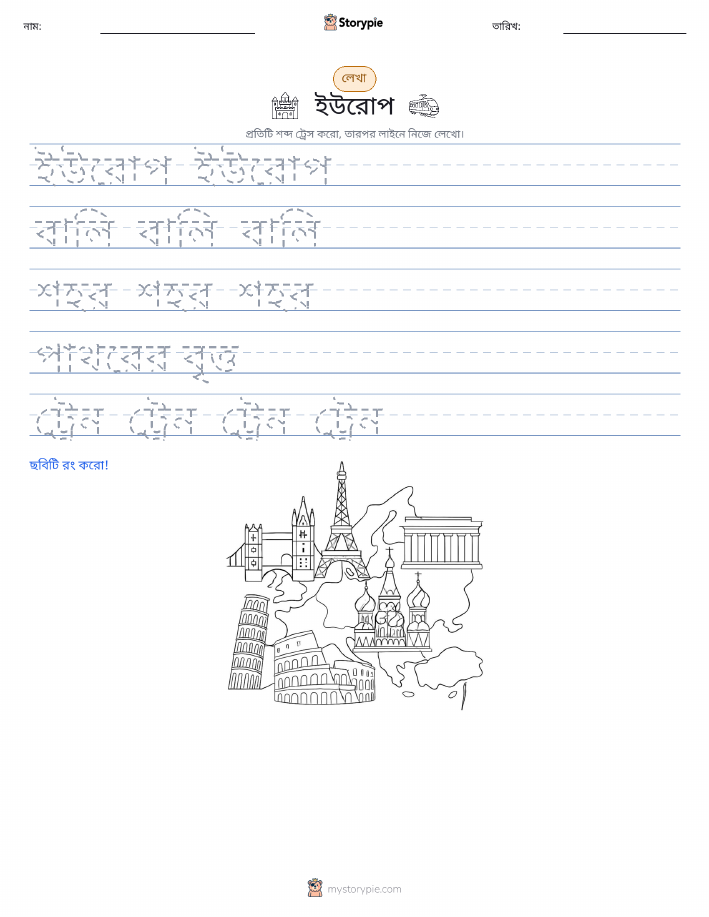 নাম:
Storypie
তারিখ:
লেখা
ইউরোপ
প্রতিটি শব্দ ট্রেস করো, তারপর লাইনে নিজে লেখো।
ইউরোপ ইউরোপ
বালি বালি বালি
শহর শহর শহর
পাথরের বৃত্ত
ট্রেন ট্রেন ট্রেন ট্রেন
ছবিটি রং করো!
mystorypie.com